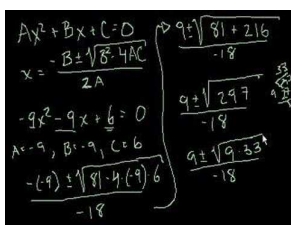 Ax² + Bx + C = 0
x = -B ± √B² - 4AC / 2A
-9x² - 9x + 6 = 0
A = -9, B = -9, C = 6
-(-9) ± √81 - 4·(-9)·6 / -18
9 ± √81 + 216 / -18
9 ± √297 / -18
9 ± √9·33 / -18
33